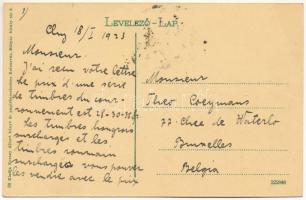 LEVELEZŐ-LAP
Cluj 18/I 1923
Monsieur.
J'ai reçu votre lettre
le prix d'une serie
de timbres du cour-
ronnement est 28-30
Les timbres hongrois
surcharges et les
timbres roumain
surcharges vous pouvez
les vendre avec le prix
Monsieur
Theo Coeymans
77 Chee de Waterlo
Bruxelles
Belgia